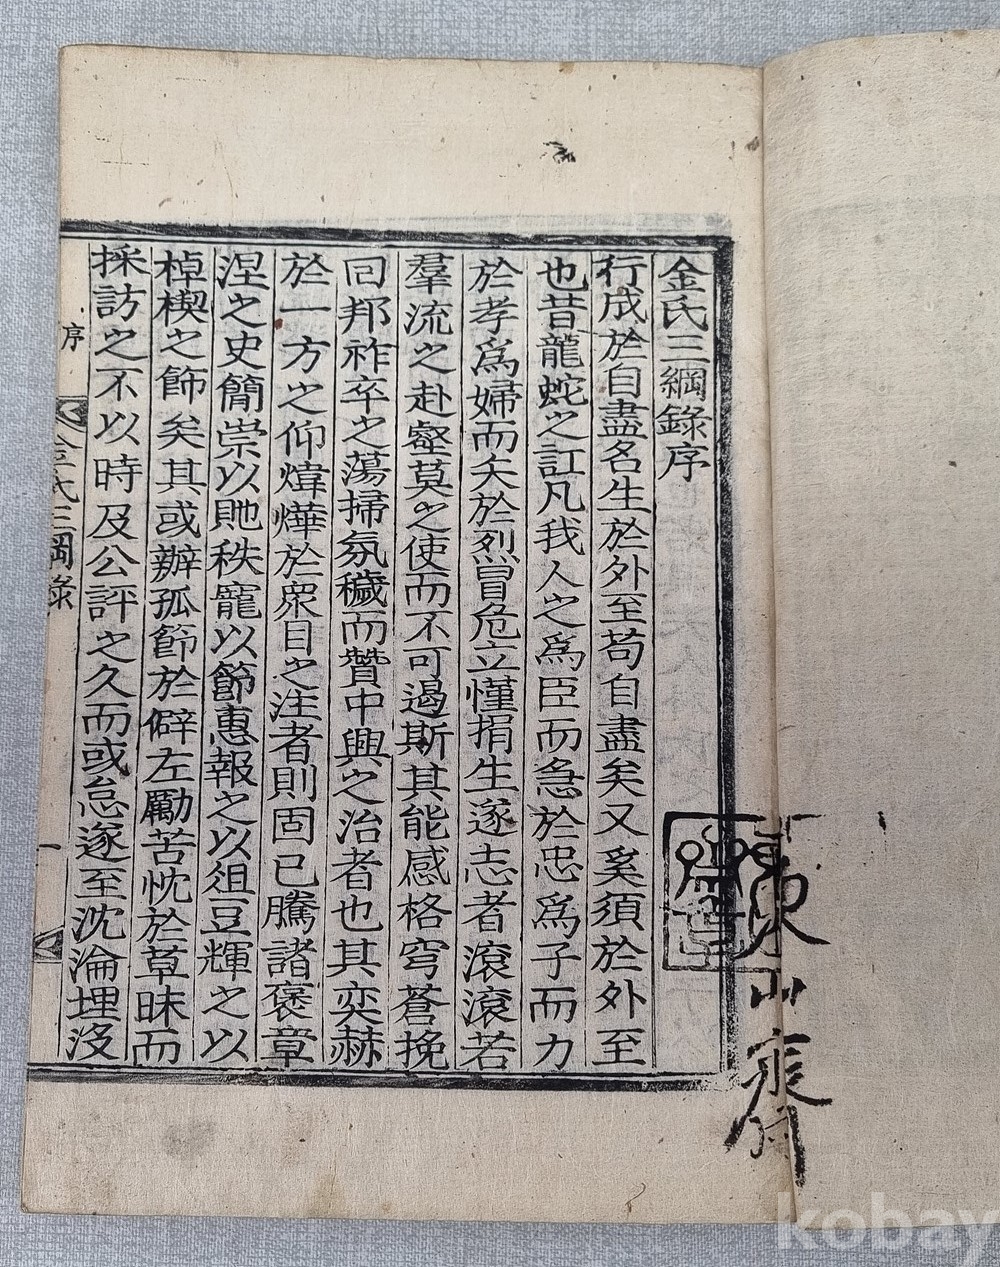 金氏三綱錄序
行成於自盡名生於外至苟自盡矣又奚須於外至
也昔龍蛇之訌凡我人之爲臣而急於忠爲子而力
於孝爲婦而夭於烈冒危立慬捐生遂志者滾滾若
羣流之赴壑莫之使而不可遏斯其能感格穹蒼挽
回邦祚卒之蕩掃氛穢而贊中興之治者也其奕赫
於一方之仰煒燁於衆目之注者則固已騰諸褒章
涅之史簡崇以貤秩寵以節惠報之以俎豆輝之以
棹楔之飾矣其或辦孤節於僻左勵苦忱於草昧而
採訪之不以時及公評之久而或怠遂至沈淪埋沒
序
金氏三綱錄
一
山齋
kobay